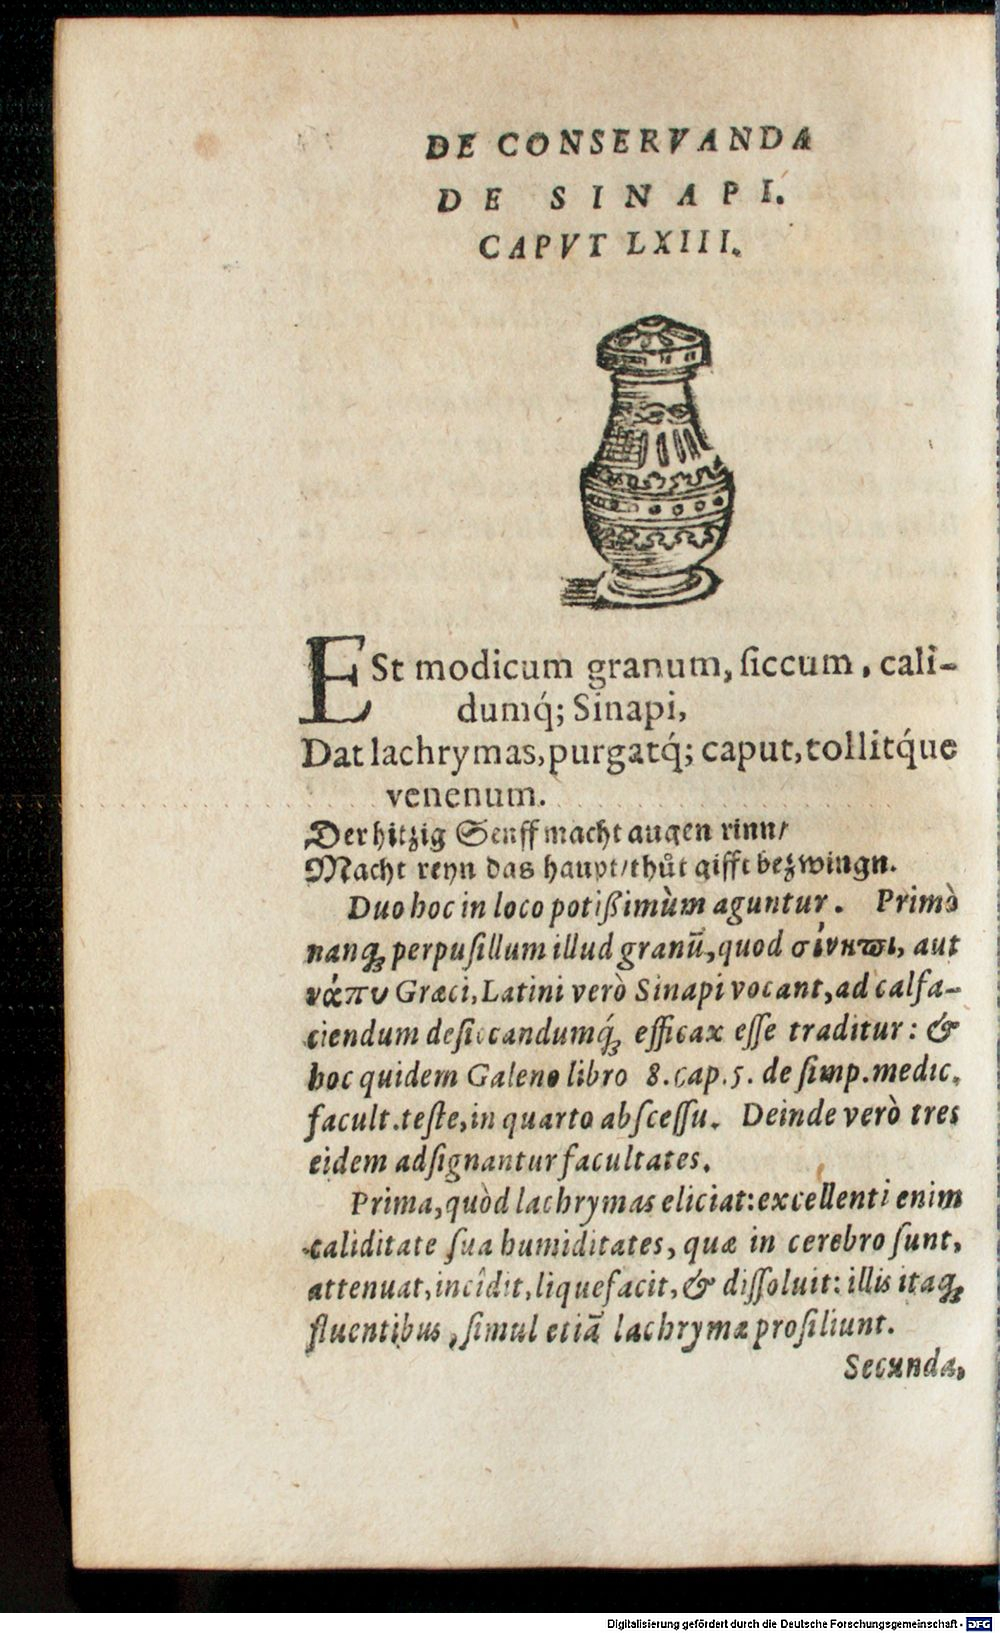 DE CONSERVANDA
DE SINAPI.
CAPVT LXIII.
ESt modicum granum, ſiccum, cali-
dumq́; Sinapi,
Dat lachrymas, purgatq́; caput, tollitq́ue
venenum.
Der hitzig Senff macht augen rinn/
Macht reyn das haupt/thuͦt gifft bezwingn.
Duo hoc in loco potißimùm aguntur. Primò
nanqꝫ perpuſillum illud granū, quod σίνηπι, aut
νάπυ Græci, Latini verò Sinapi vocant, ad calfa-
ciendum deſiccandumq́ꝫ efficax eſſe traditur: &
hoc quidem Galeno libro 8. cap. 5. de ſimp. medic.
facult. teſte, in quarto abſceſſu. Deinde verò tres
eidem adſignantur facultates.
Prima, quòd lachrymas eliciat: excellenti enim
caliditate ſua humiditates, quæ in cerebro ſunt,
attenuat, incîdit, liquefacit, & diſſoluit: illis itaqꝫ
fluentibus, ſimul etiā lachrymæ proſiliunt.
Secunda,
Digitalisierung gefördert durch die Deutsche Forschungsgemeinschaft - DFG